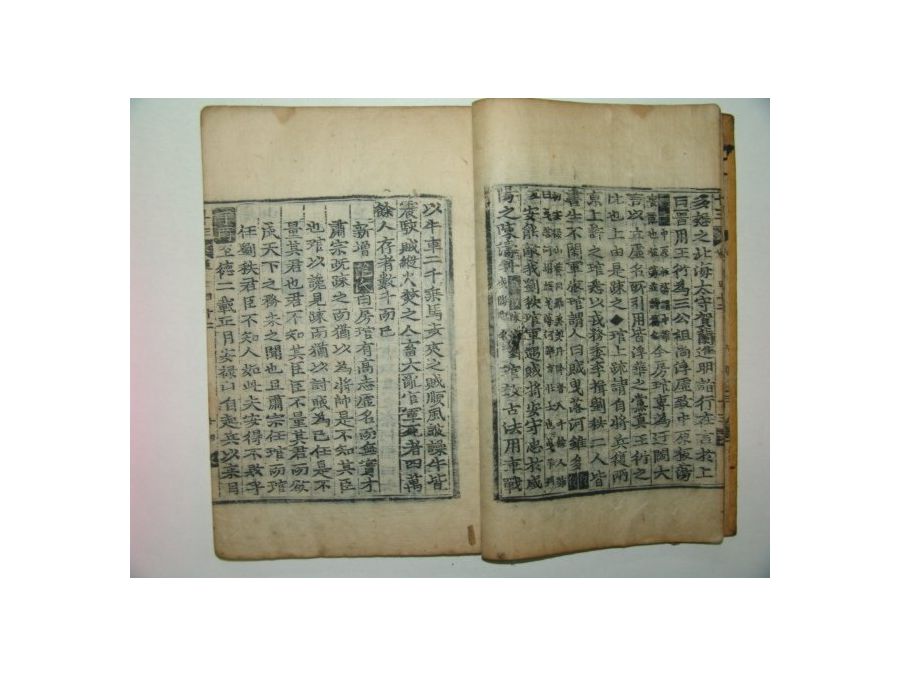 多怨之北海太守賀蘭進明詣行在言於上
曰晉用王衍為三公祖尚浮虛致中原板蕩
今房琯專為迂闊大
言以立虛名所引用皆浮華之黨真王衍之
比也上由是疎之◆琯上疏請自將兵復兩
京上許之琯悉以戎務委李揖劉秩二人皆
書生不閑軍旅琯謂人曰賊曳落河雖多
安能敵我劉秩琯軍遇賊將安守忠於咸
陽之陳濤斜琯效古法用車戰
以牛車二千乘馬步夾之賊順風鼓譟牛皆
震駭賊縱火焚之人畜大亂官軍死者四萬
餘人存者數千而已
新增 范氏曰房琯有高志虛名而無實才
肅宗旣疎之而猶以為將帥是不知其臣
也琯以讒見疎而猶以討賊為己任是不
量其君也君不知其臣臣不量其君而欲
成天下之務未之聞也且肅宗任琯而琯
任劉秩君臣不知人如此夫安得不敗乎
丁酉 至德二載正月安祿山自起兵以來目